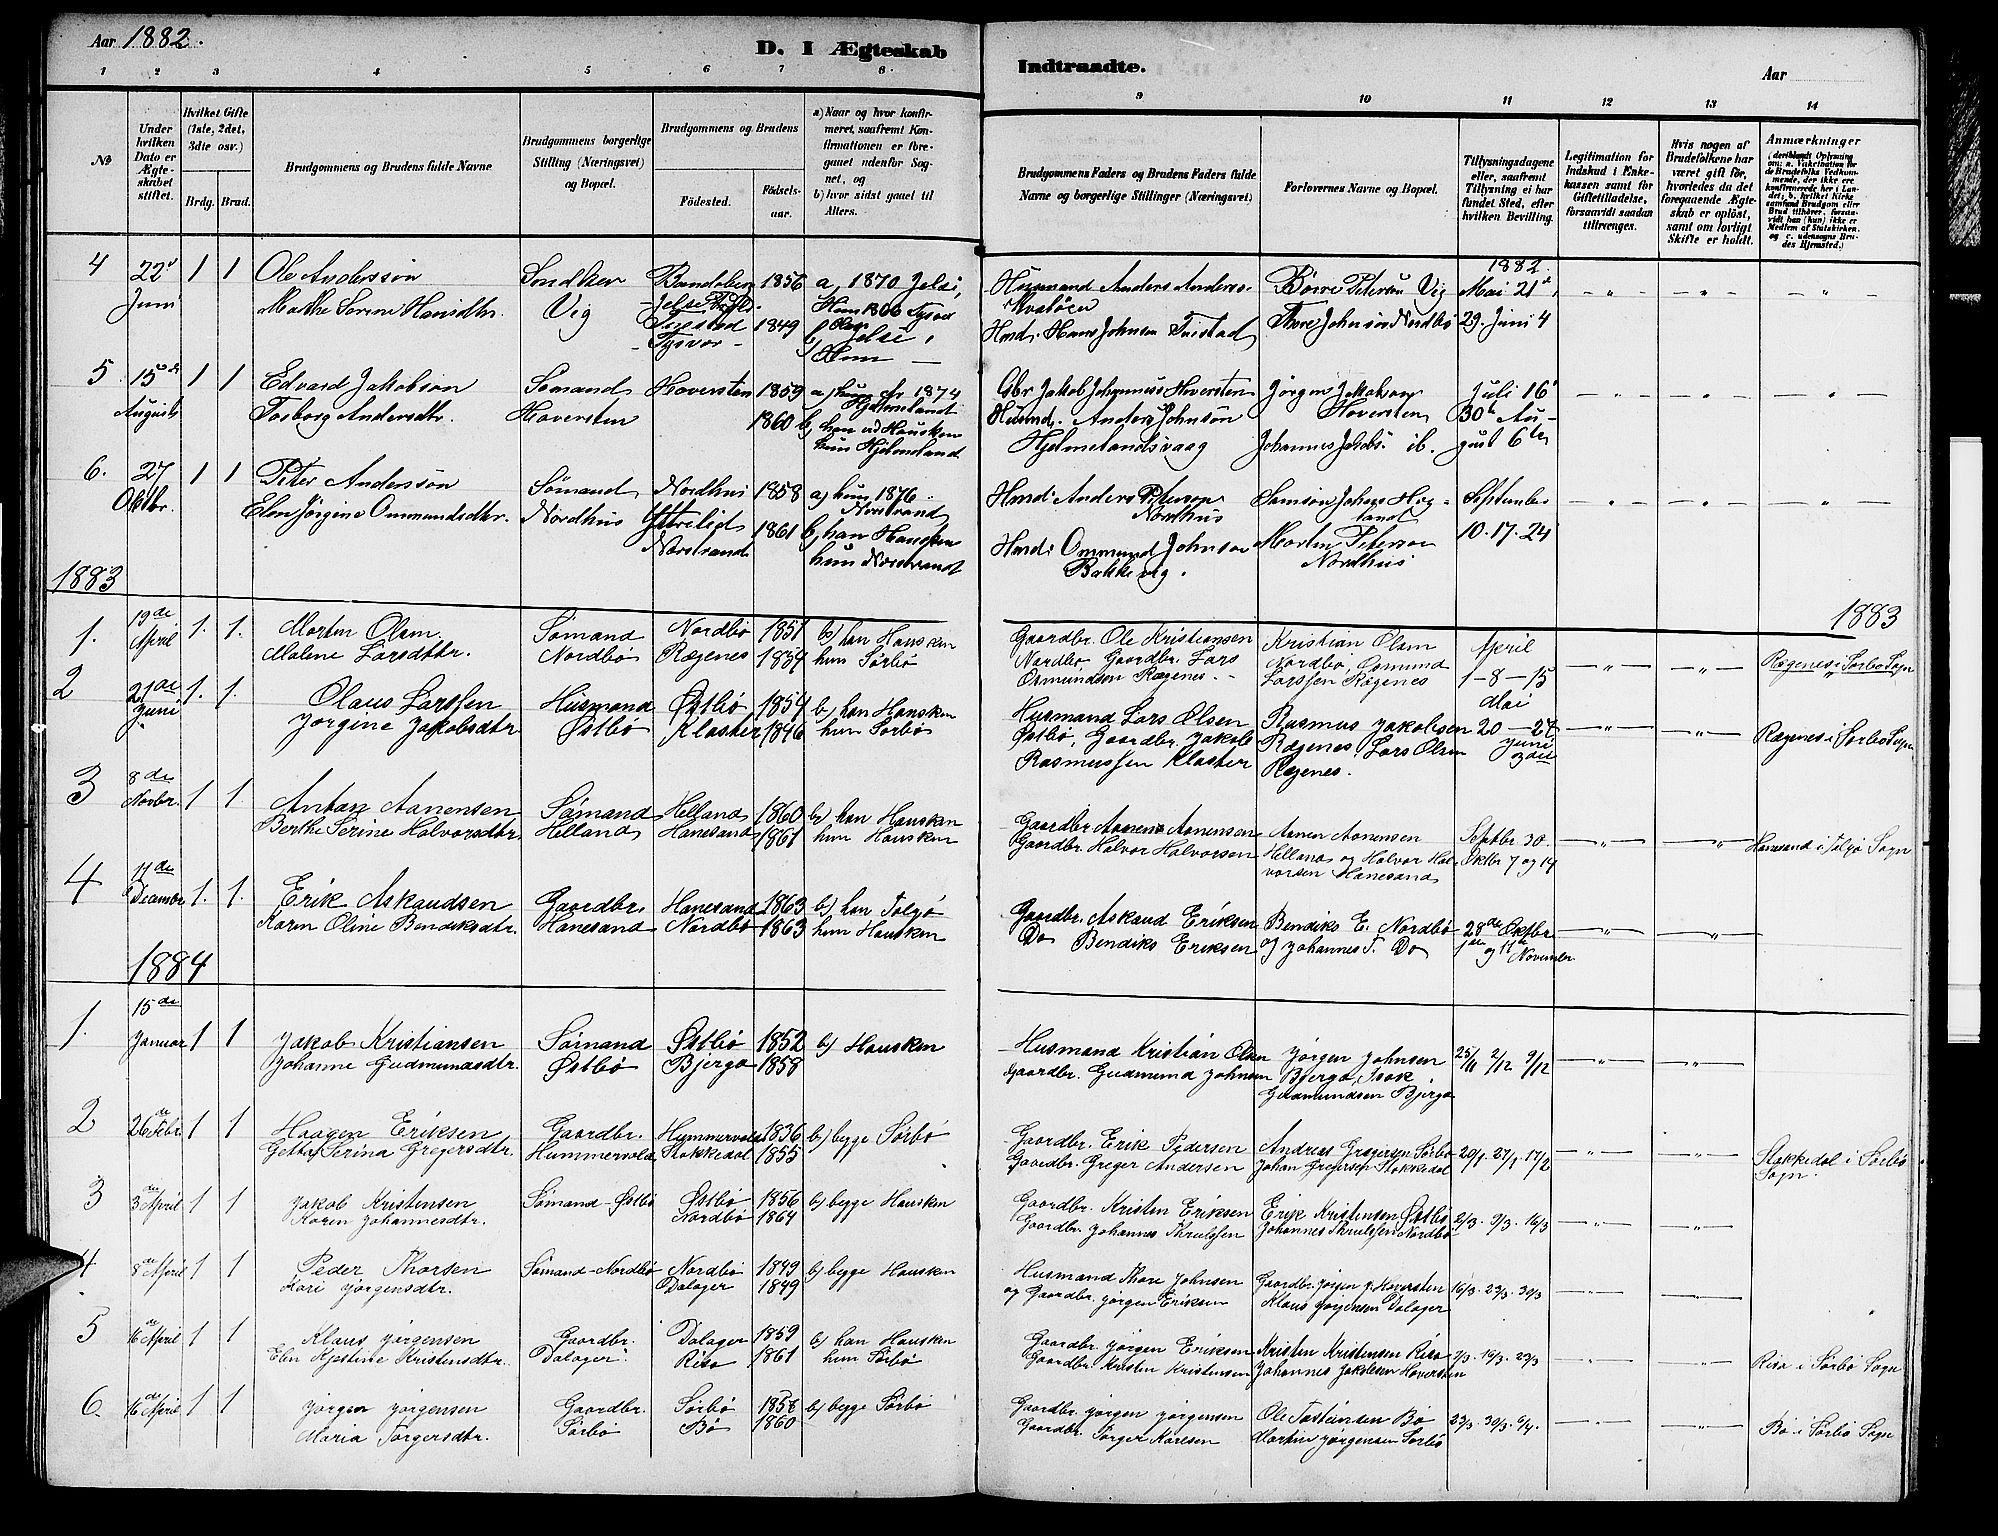 Aar 1882.
D. I Ægteskab
Indtraadte.
Aar
1 2 3 4 5 6 7 8
9 10 11 12 13 14
№
Under hvilken Dato er Ægteskabet stiftet.
Hvilket Gifte (1ste, 2det, 3die osv.)
Brdg. Brud.
Brudgommens og Brudens fulde Navne
Brudgommens borgerlige Stilling (Næringsvei) og Bopæl.
Brudgommens og Brudens
Fødested.
Fødselsaar.
a) Naar og hvor konfirmeret, saafremt Konfirmationen er foregaaet udenfor Sognet, og
b) hvor sidst gaaet til Alters.
Brudgommens Faders og Brudens Faders fulde Navne og borgerlige Stillinger (Næringsvei)
Forlovernes Navne og Bopæl.
Tillysningsdagene eller, saafremt Tillysning ei har fundet Sted, efter hvilken Bevilling.
Legitimation for Indskud i Enkekassen samt for Giftetilladelse, forsaavidt saadan tiltrænges.
Hvis nogen af Brudefolkene har været gift før, hvorledes da det foregaaende Ægteskab er opløst, samt om lovligt Skifte er holdt.
Anmærkninger
(deriblandt Oplysning om: a. Vakcination for de Brudefolks Vedkommende, der ikke ere konfirmerede her i Landet; b. hvilket Kirkesamfund Brudgom eller Brud tilhører, forsaavidt han (hun) ikke er Medlem af Statskirken, og c. udensogns Brudes Hjemsted.)
4 22 Juni 1 1 Ole Anderssøn
Marthe Serene Hansdtr.
Vig
Jelse
Tysvær
1856
1849
a, 1870 Jelsi,
Tysvær
b, Jelsi,
Husmand Anders
Hmd. Hans Johnsen
Børre Petersen Vig
Thore Johnsøn Nordbø
1882.
Mai 21
29. Juni 4
5 15de August 1 1 Edvard Jakobsøn
Andersdtr.
Sømand
Hoversten
Hoversten
1859
1860
a, hun 1874
Hjelmeland
b, han ved Hausken
hun Hjelmeland
Gbr Jakob Johanness Hoversten
Husmd. Anders Johnsøn
Hjelmelandsvaag
Jørgen Jakobsen
Hoversten
Johannes Jakobs. ib.
Juli 16
30te August 6te
6. 27 Oktbr. 1 1 Peter Anderssøn
Elen Jørgine Ommundsdtr.
Sømand
Nordhus
Nordhus
Nerstrand
1858
1861
a) hun 1876
Nerstrand
b, han Hausken
hun Nerstrand
Hmd. Anders Peterson
Nordhus
Hmd. Ommund Johnson
Bakkevig.
Samson Johns
Morten Peterson
Nordhus
September
10. 17. 24
1883
1883
1. 19de April 1. 1. Morten Olsen.
Malene Larsdttr.
Sømand
Nordbø
Nordbø
Rægenes
1851
1854
b) han Hausken
hun Sørbø
Gaardbr. Ole Kristiansen
Nordbø, Gaardbr. Lars
Osmundsen Rægenes.
Kristian Olsen
Nordbø, Osmund
Larssen Rægenes
April
1-8-15
Rægenes i Sørbø Sogn
2 21de Juni 1. 1. Olaus Larssen
Jørgine Jakobsdtr
Husmand
Østbø
Østbø
Kloster
1854
1846
b) han Hausken
hun Sørbø
Husmand Lars Olsen
Østbø, Gaardbr. Jakob
Rasmussen Kloster
Rasmus Jakobsen
Rægenes, Lars Olsen
Rægenes.
Mai
20-27
Juni
Rægenes i Sørbø Sogn
3 8de Novbr. 1 1. Anton Aanensen
Berthe Serine Halvorsdtr.
Sømand
Helland
Helland
Hanesand
1860
1861
b) han Hausken
hun Hausken
Gaardbr. Aanen Aanensen
Gaardbr. Halvor Halvorsen
Aanen Aanensen
Helland og Halvor Halvorsen Hanesand
Septbr 30.
Oktbr 7 og 14
Hanesand i Talgø Sogn
4 11de Decembr 1. 1. Erik Askaudsen
Karen Oline Bendiksdtr.
Gaardbr.
Hanesand
Hanesand
Nordbø
1863
1863
b) han Talgø
hun Hausken
Gaardbr. Askaud Eriksen
Do Bendiks Eriksen
Bendiks E. Nordbø
og Johannes T. Do
28de Oktbr
1ste og 11te November
1884
1. 15de Januar 1 1 Jakob Kristiansen
Johanne Gudmundsdtr.
Sømand
Østbø
Østbø
Bjergo
1852
1858
b) Hausken
Husmand Kristian Olsen
Gaardbr. Gudmund Johnsen
Jørgen Johnsen
Bjergo, Isak
Gudmundsen Bjergo
25/11 2/12 9/12
2 26de Febr. 1 1 Haagen Eriksen
Serina Gregersdtr.
Gaardbr.
Hummervold
Hummervold
Stokkedal
1836
1855
b) begge Sørbø
Gaardbr. Erik Pedersen
Gaardbr. Greger Andersen
Andreas Gregersen Sørbø
Johan Gregersen Stokkedal
20/1 27/1 17/2
Stokkedal i Sørbø Sogn.
3 3de April 1 1 Jakob Kristensen
Karen Johannesdtr.
Sømand - Østbø
Østbø
Nordbø
1856
1864
b) begge Hausken
Gaardbr. Kristen Eriksen
Gaardbr. Johannes Thrulssen
Erik Kristensen Østbø
Johannes Thrulssen Nordbø
2/3. 9/3. 16/3
4 8de April 1 1 Peder Thorsen
Kari Jørgensdtr.
Sømand - Nordbø
Nordbø
Dalager
1849
1849
b) begge Hausken
Husmand Thore Johnsen
og Gaardbr. Jørgen Eriksen
Gaardbr. Jørgen J. Hoversten
Klaus Jørgensen Dalager
16/3. 23/3. 30/3
5 16de April 1 1 Klaus Jørgensen
Elen Kjestine Kristensdtr.
Gaardbr.
Dalager.
Dalager
Risa
1859
1861
b) han Hausken
hun Sørbø
Gaardbr. Jørgen Eriksen
Gaardbr. Kristen Kristensen
Kristen Kristensen Risa
Johannes Jakobsen Hoversten
Risa i Sørbø Sogn
6. 16de April 1 1 Jørgen Jørgensen
Maria Torgersdtr.
Gaardbr.
Sørbø
Sørbø
Bø
1858
1860
b) begge Sørbø
Gaardbr. Jørgen Jørgensen
Gaardbr. Torger Karlsen
Ole Torstensen Bø
Martin Jørgensen Sørbø
23/3. 30/3. 6/4.
Bø i Sørbø Sogn